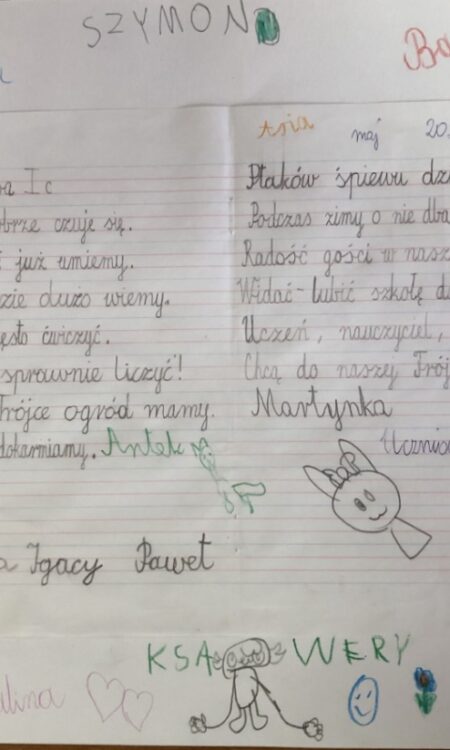 SZYMON
Asia
maj 20
Ic
czuje się.
już umiemy.
dużo wiemy.
ćwiczyć.
sprawnie liczyć!
Trójce ogród mamy.
dokarmiamy. Antek
Ptaków śpiewu
Podczas zimy o nie
Radość gości w
Widać-lubić szkołę
Uczeń, nauczyciel,
Chcą do naszej
Martynka
Igacy Paweł
KSAWERY